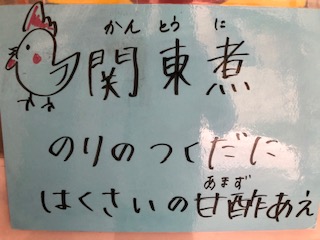 かんとうに
関東煮
のりのつくだに
あまず
はくさいの甘酢あえ